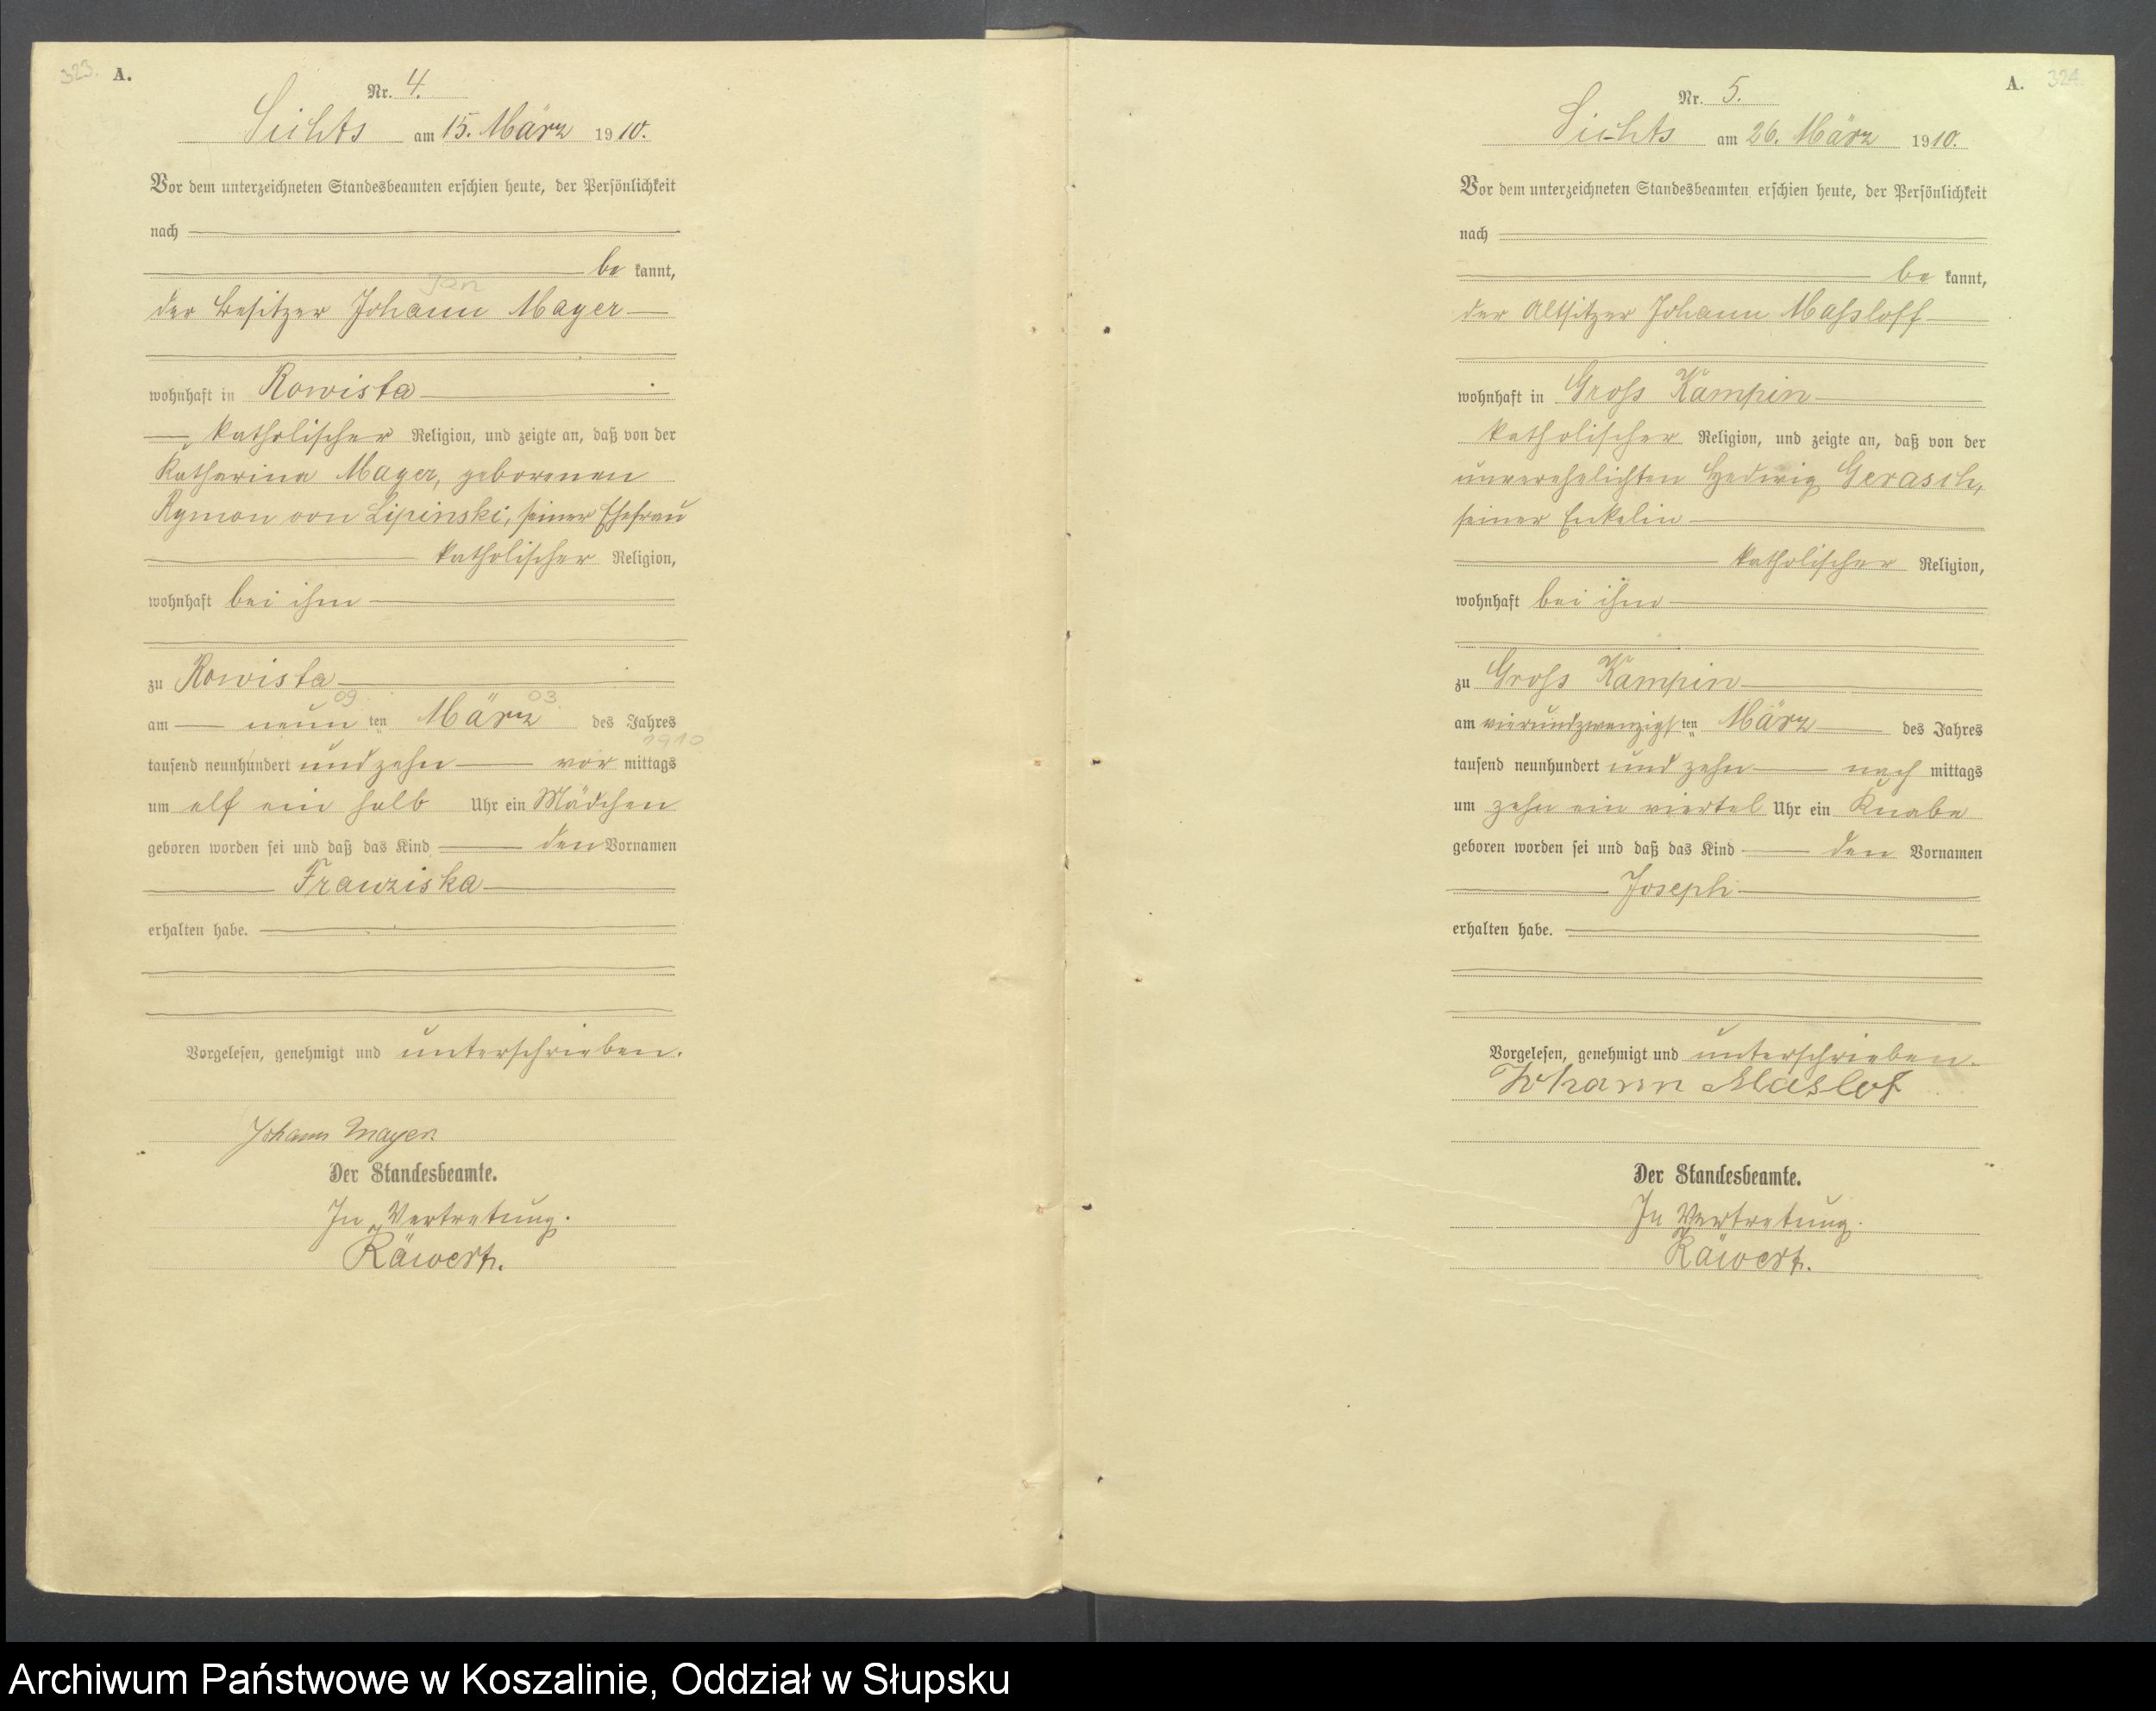 323. A.
Nr. 4.
Lichts am 15. März 1910.
Vor dem unterzeichneten Standesbeamten erschien heute, der Persönlichkeit
nach
be kannt,
Jan
der Besitzer Johann Mayer
wohnhaft in Rowista
katholischer Religion, und zeigte an, daß von der
Katharina Mayer, geborenen
Rymon von Lipinski, seiner Ehefrau
katholischer Religion,
wohnhaft bei ihm
zu Rowista
09 03
am neun ten März des Jahres
1910
tausend neunhundert und zehn vor mittags
um elf ein halb Uhr ein Mädchen
geboren worden sei und daß das Kind den Vornamen
Franziska
erhalten habe.
Vorgelesen, genehmigt und unterschrieben.
Johann Mayer
Der Standesbeamte.
In Vertretung.
Räwert.
A. 324.
Nr. 5.
Lichts am 26. März 1910.
Vor dem unterzeichneten Standesbeamten erschien heute, der Persönlichkeit
nach
be kannt,
der Altsitzer Johann Maßloff
wohnhaft in Gross Kampin
katholischer Religion, und zeigte an, daß von der
unverehelichten Hedwig Gerasch,
seiner Enkelin
katholischer Religion,
wohnhaft bei ihm
zu Gross Kampin
am vierundzwanzigsten März des Jahres
tausend neunhundert und zehn nach mittags
um zehn ein viertel Uhr ein Knabe
geboren worden sei und daß das Kind den Vornamen
Joseph
erhalten habe.
Vorgelesen, genehmigt und unterschrieben.
Johann Maslof
Der Standesbeamte.
In Vertretung.
Räwert.
Archiwum Państwowe w Koszalinie, Oddział w Słupsku